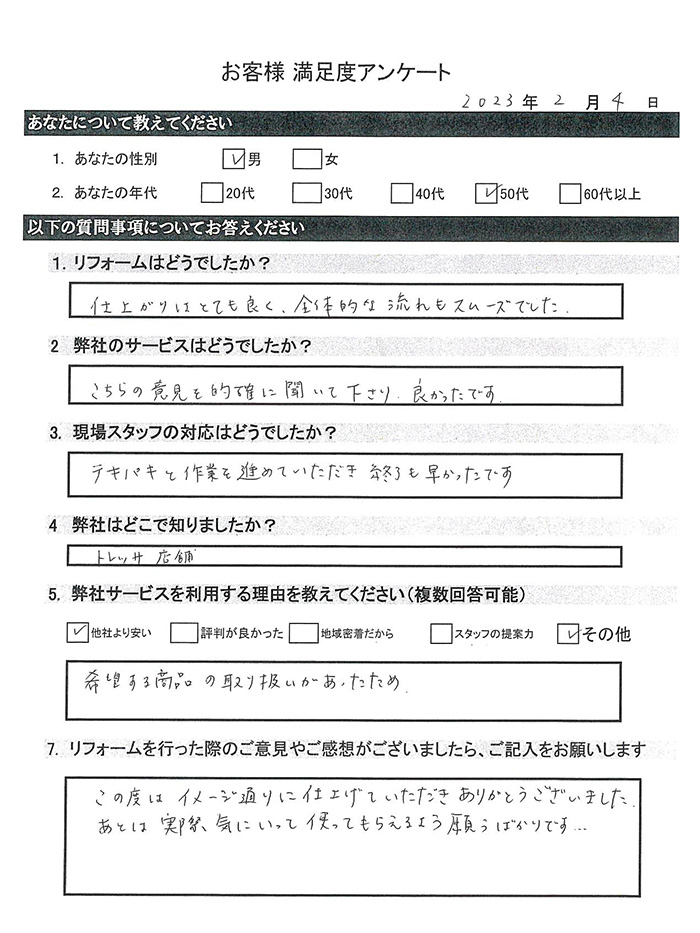 お客様 満足度アンケート
2023年 2月 4日
あなたについて教えてください
1. あなたの性別 ☑男 □女
2. あなたの年代 □20代 □30代 □40代 ☑50代 □60代以上
以下の質問事項についてお答えください
1. リフォームはどうでしたか？
仕上がりはとても良く、全体的な流れもスムーズでした.
2 弊社のサービスはどうでしたか？
こちらの意見を的確に聞いて下さり、良かったです.
3. 現場スタッフの対応はどうでしたか？
テキパキと作業を進めていただき 終了も早かったです
4 弊社はどこで知りましたか？
トレッサ店舗
5. 弊社サービスを利用する理由を教えてください（複数回答可能）
☑他社より安い □評判が良かった □地域密着だから □スタッフの提案力 ☑その他
希望する商品の取り扱いがあったため.
7. リフォームを行った際のご意見やご感想がございましたら、ご記入をお願いします
この度は イメージ通りに仕上げていただき ありがとうございました.
あとは 実際、気にいって 使ってもらえるよう 願うばかりです…